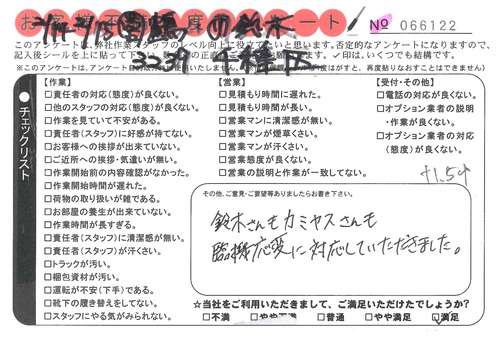 No 066122
このアンケートは、弊社作業スタッフのレベル向上に役立てたいと思います。否定的なアンケートになりますので、
※このアンケートは、
再度貼りなおすことはできません)
チェックリスト
【作業】
□責任者の対応(態度)が良くない。
□他のスタッフの対応(態度)が良くない。
□作業を見ていて不安がある。
□責任者(スタッフ)に好感が持てない。
□お客様への挨拶が出来ていない。
□ご近所への挨拶・気遣いが無い。
□作業開始前の内容確認がなかった。
□作業開始時間が遅れた。
□荷物の取り扱いが雑である。
□お部屋の養生が出来ていない。
□作業時間が長すぎる。
□責任者(スタッフ)に清潔感が無い。
□責任者(スタッフ)が汗くさい。
□トラックが汚い。
□梱包資材が汚い。
□運転が不安(下手)である。
□靴下の履き替えをしてない。
□スタッフにやる気がみられない。
【営業】
□見積もり時間に遅れた。
□見積もり時間が長い。
□営業マンに清潔感が無い。
□営業マンが煙草くさい。
□営業マンが汗くさい。
□営業態度が良くない。
□営業の説明と作業が一致してない。
【受付・その他】
□電話の対応が良くない。
□オプション業者の説明
・作業が良くない。
□オプション業者の対応
(態度)が良くない。
その他、ご意見・ご要望等ありましたらお書き下さい。
鈴木さんもカミヤスさんも
臨機応変に対応していただきました。
☆当社をご利用いただきまして、ご満足いただけてでしょうか?
□不満 □やや不満 □普通 □やや満足 ☑満足